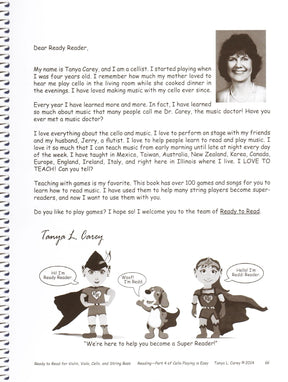 Dear Ready Reader,
My name is Tanya Carey, and I am a cellist. I started playing when
I was four years old. I remember how my mother loved to
hear me play cello in the living room while she cooked dinner
in the evenings. I have loved making music with my cello ever since.
Every year I have learned more and more. In fact, I have learned
so much about music that many people call me Dr. Carey, the music doctor! Have you
ever met a music doctor?
I love everything about the cello and music. I love to perform on stage with my friends
and my husband, Jerry, a flutist. I love to help people learn to read and play music. I
love it so much that I can teach music from early morning until late at night every day
of the week. I have taught in Mexico, Taiwan, Australia, New Zealand, Korea, Canada,
Europe, England, Ireland, Italy, and right here in Illinois where I live. I LOVE TO
TEACH! Can you tell?
Teaching with games is my favorite. This book has over 100 games and songs for you to
learn how to read music. I have used them to help many string players become super-
readers, and now I want to use them with you.
Do you like to play games? I hope so! I welcome you to the team of Ready to Read.
Tanya L. Carey
Hi! I'm
Ready Reader!
Woof!
I'm Redd.
Hello! I'm
Readi Reader.
"We're here to help you become a Super Reader!"
Ready to Read for Violin, Viola, Cello, and String Bass Reading—Part 4 of Cello Playing is Easy Tanya L. Carey © 2014